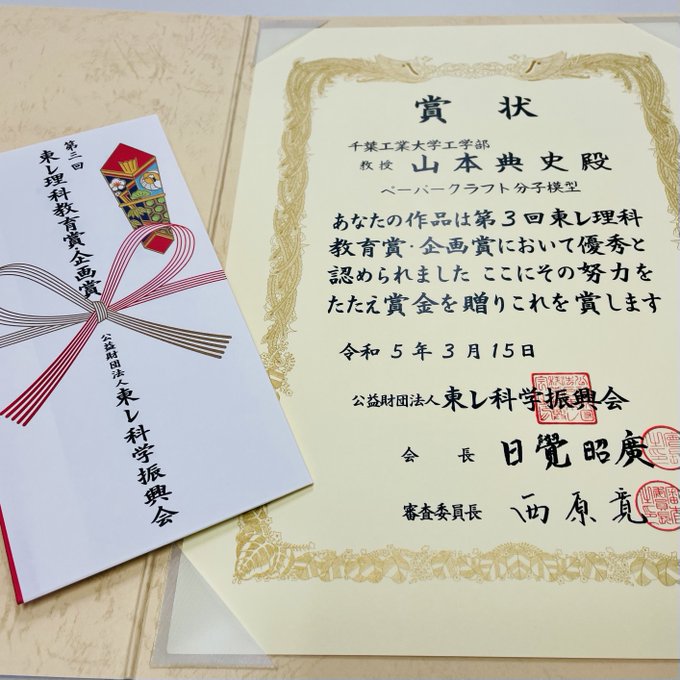 第三回
東レ理科教育賞・企画賞
公益財団法人
東レ科学振興会
賞状
千葉工業大学工学部
教授 山本典史殿
ペーパークラフト分子模型
あなたの作品は第3回東レ理科
教育賞・企画賞において優秀と
認められました ここにその努力を
たたえ賞金を贈りこれを賞します
令和5年3月15日
公益財団法人 東レ科学振興会
会長 日覺昭廣
審査委員長 西原寛